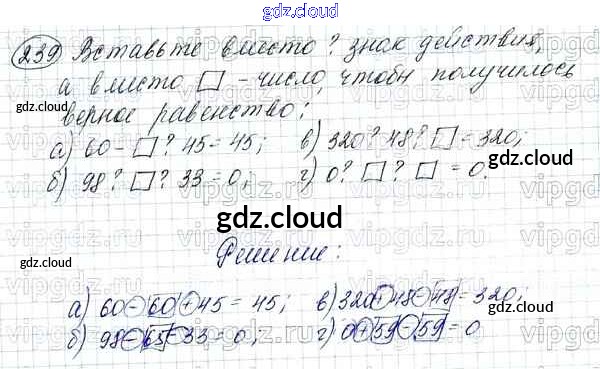 gdz.cloud
239) Вставьте вместо ? знак действия,
а вместо □ - число, чтобы получилось
верное равенство:
gdz.cloud
а) 60 - □ ? 45 = 45; в) 320 ? 48 ? □ = 320;
gdz.cloud
б) 98 ? □ ? 33 = 0; г) 0 ? □ ? □ = 0.
gdz.cloud
Решение:
gdz.cloud
а) 60 - 60 + 45 = 45; в) 320 + 48 - 48 = 320;
б) 98 - 65 - 33 = 0; г) 0 + 59 - 59 = 0
gdz.cloud